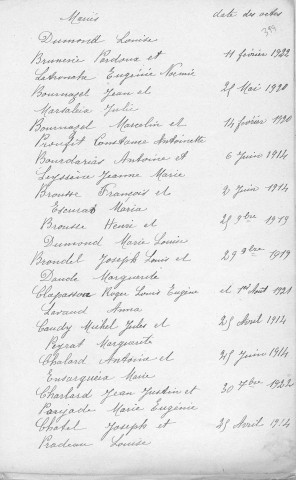 Mariés date des actes
399
Dumond Louise
Brunerie Pardoux et 11 février 1922
Latronche Eugénie Noémie
Bournazel Jean et 25 Mai 1920
Marsalieu Julie
Bournazel Marcelin et 14 février 1920
Proufit Constance Antoinette
Bourdariès Antoine et 6 Juin 1914
Leyssène Jeanne Marie
Brousse François et 2 Juin 1914
Escurat Maria
Brousse Henri et 25 9bre 1919
Dumond Marie Louise
Brondel Joseph Louis et 29 9bre 1919
Daude Marguerite
Clapasson Roger Louis Eugène et 1er Août 1921
Lavaud Anna
Caudy Michel Jules et 25 Avril 1914
Peyrat Marguerite
Chalard Antoine et Juin 1914
Marie
Chartard Jean Justin et 30 7bre 1922
Marie Eugénie
Châtel Joseph et 25 Avril 1914
Pradeau Louise